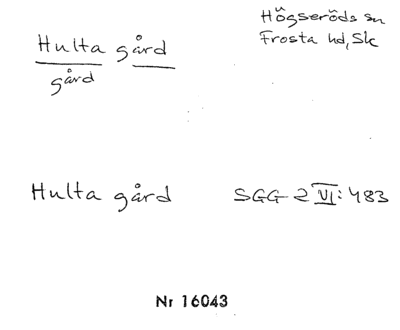 Hulta gård
gård
Högseröds sn
Frosta hd, Sk
Hulta gård SGG 2 VI: 483
Nr 16043